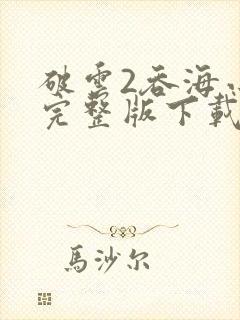 破雲2吞海
完整版下載
馬沙尔